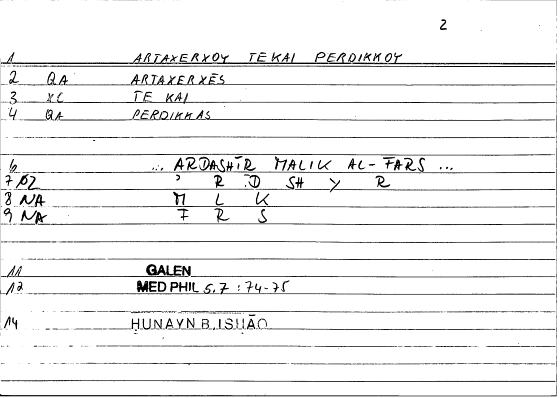 2
1 ARTAXERXOY TE KAI PERDIKKOY
2 QA ARTAXERXĒS
3 XC TE KAI
4 QA PERDIKKAS
6 ... ARDASHĪR MALIK AL-FARS ...
7 ʾ R D SH Y R
8 NA M L K
9 NA F R S
11 GALEN
12 MED PHIL 5,7 : 74-75
14 ḤUNAYN B. ISḤĀQ